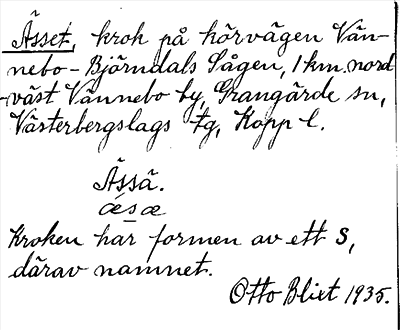 Ässet, krok på körvägen Vän-
nebo - Björndals Sågen, 1 km. nord
-väst Vännebo by, Grangärde sn,
Västerbergslags tg, Kopp l.
Ässä.
æsæ
Kroken har formen av ett S,
därav namnet.
Otto Blixt 1935.